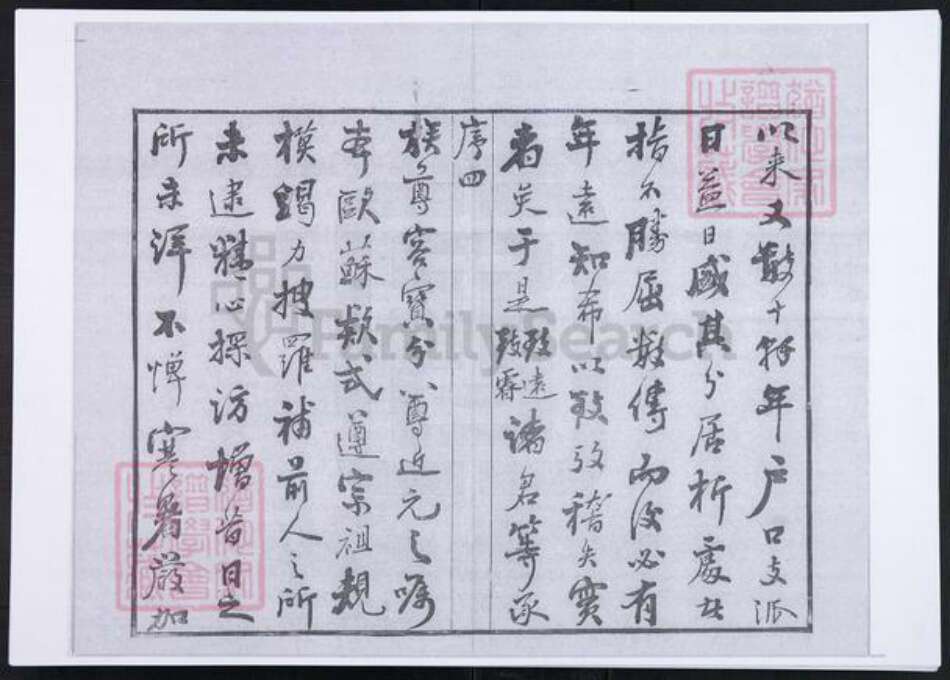 以来又數十餘年户口支派
日益日盛其分居析處者
指不勝屈數傳而後必有
年遠知希以致攷稽失實
者矣于是致遠致霖諸名等承
序四
族尊容寶公尊近元之嘱
本歐蘇款式遵宗祖規
模竭力搜羅補前人之所
未逮精心探訪增昔日之
所未詳不憚寒暑嚴加
FamilySearch